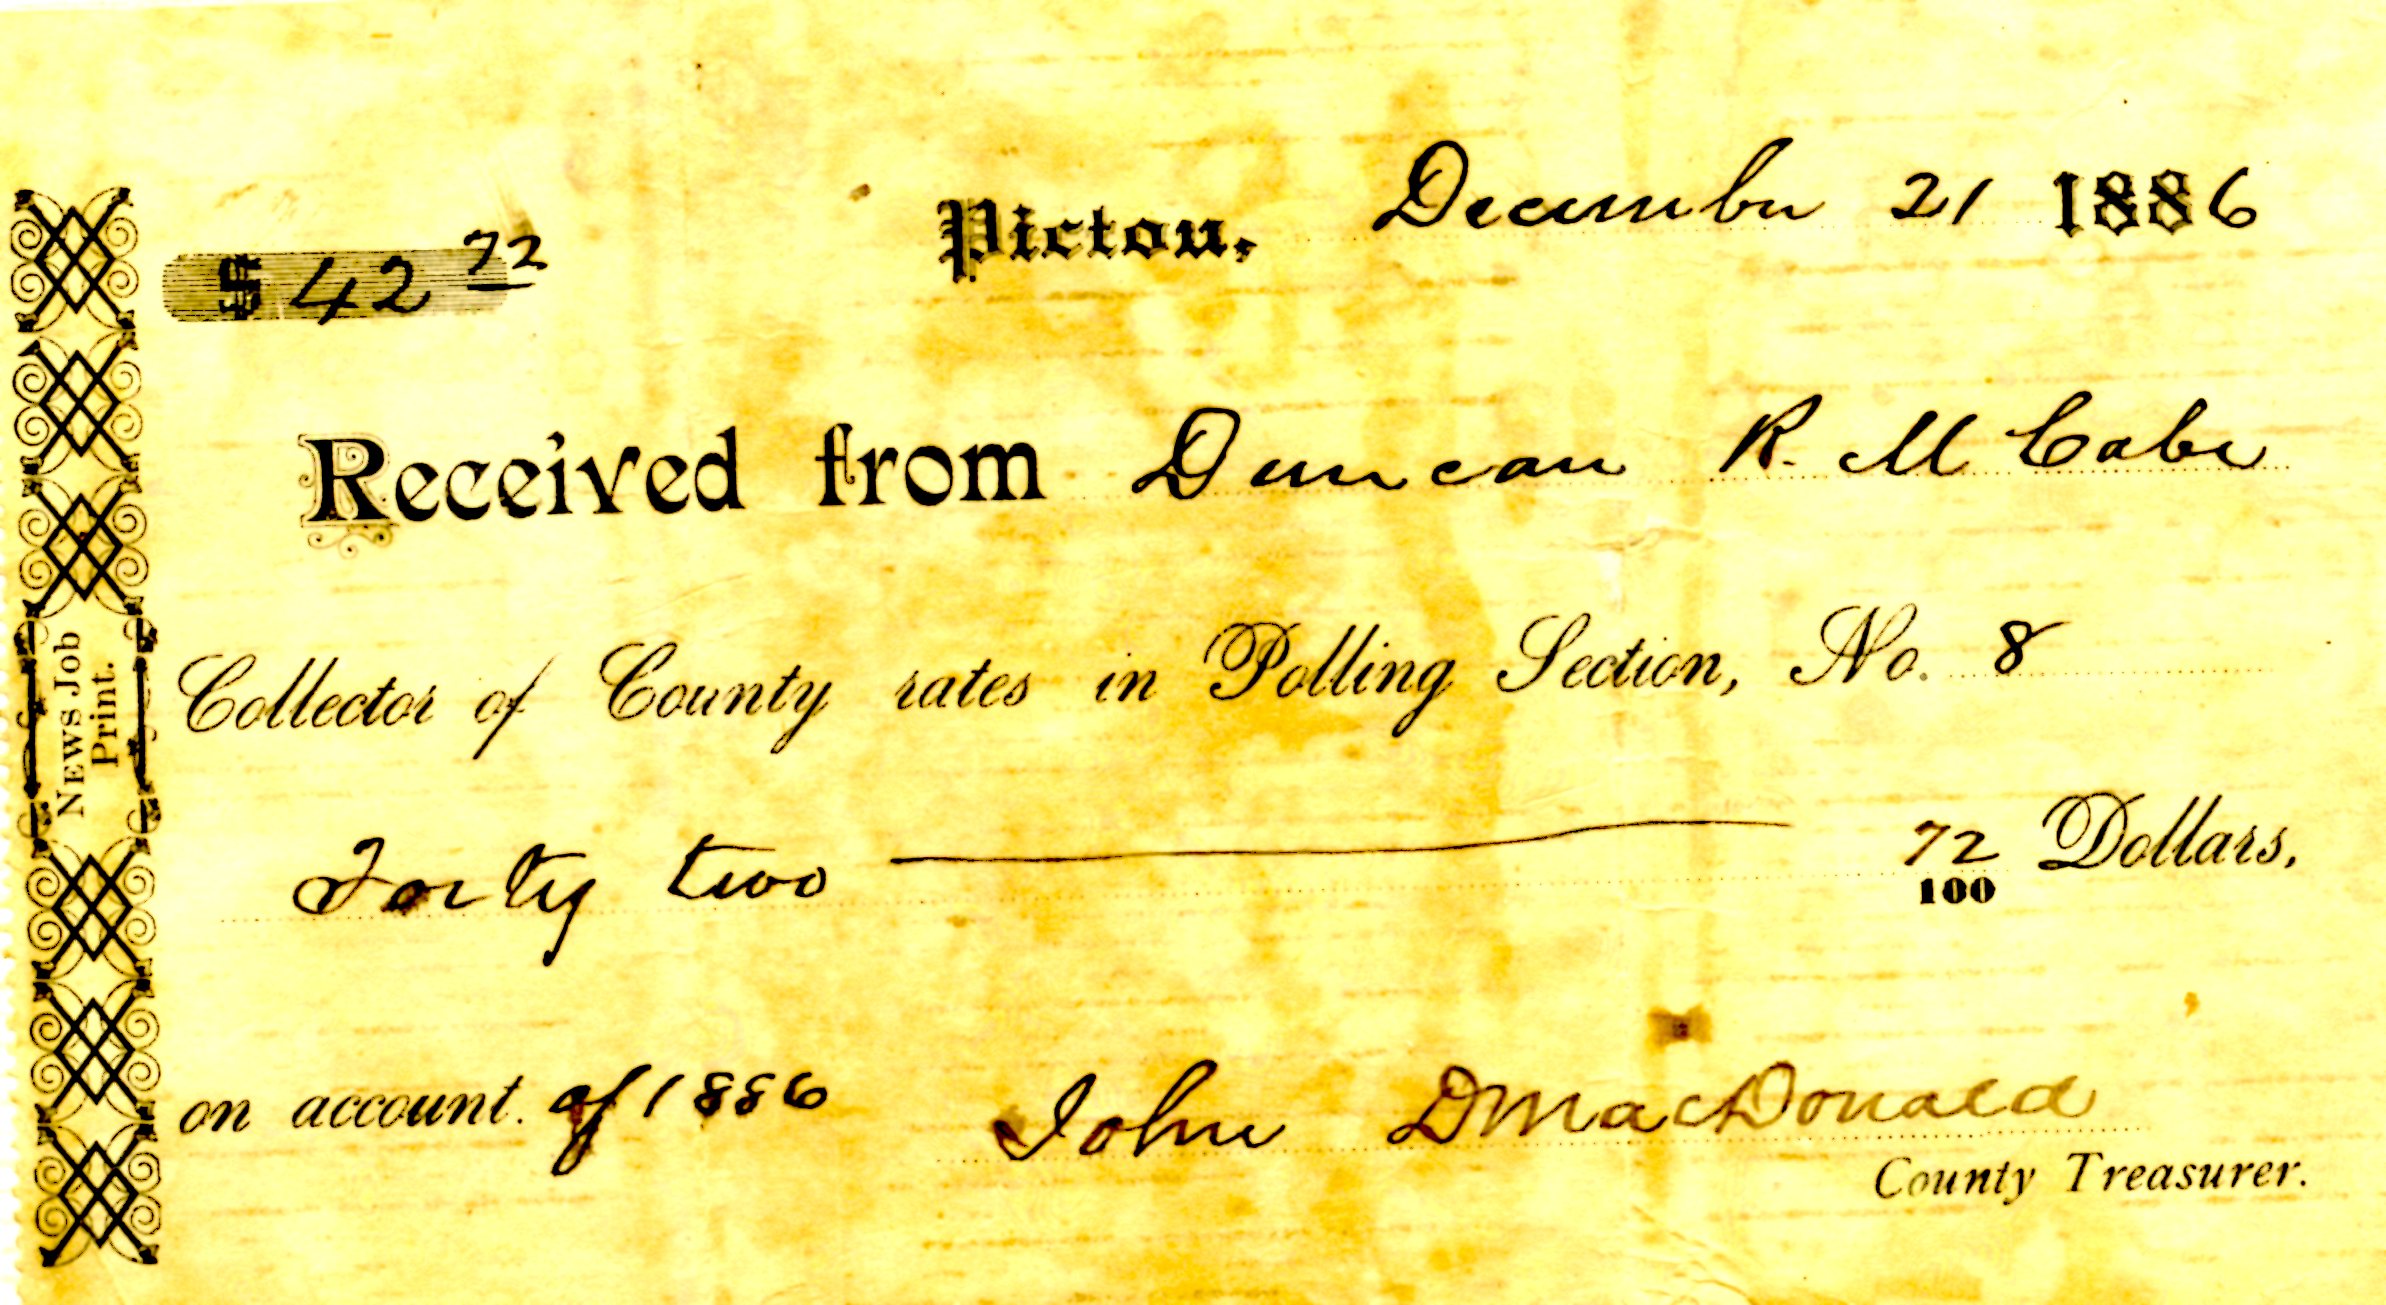 $ 42 72
Pictou, December 21 1886
Received from Duncan R. McCabe
Collector of County rates in Polling Section, No. 8
Forty two 72/100 Dollars,
on account of 1886 John D MacDonald
County Treasurer.
News Job
Print.